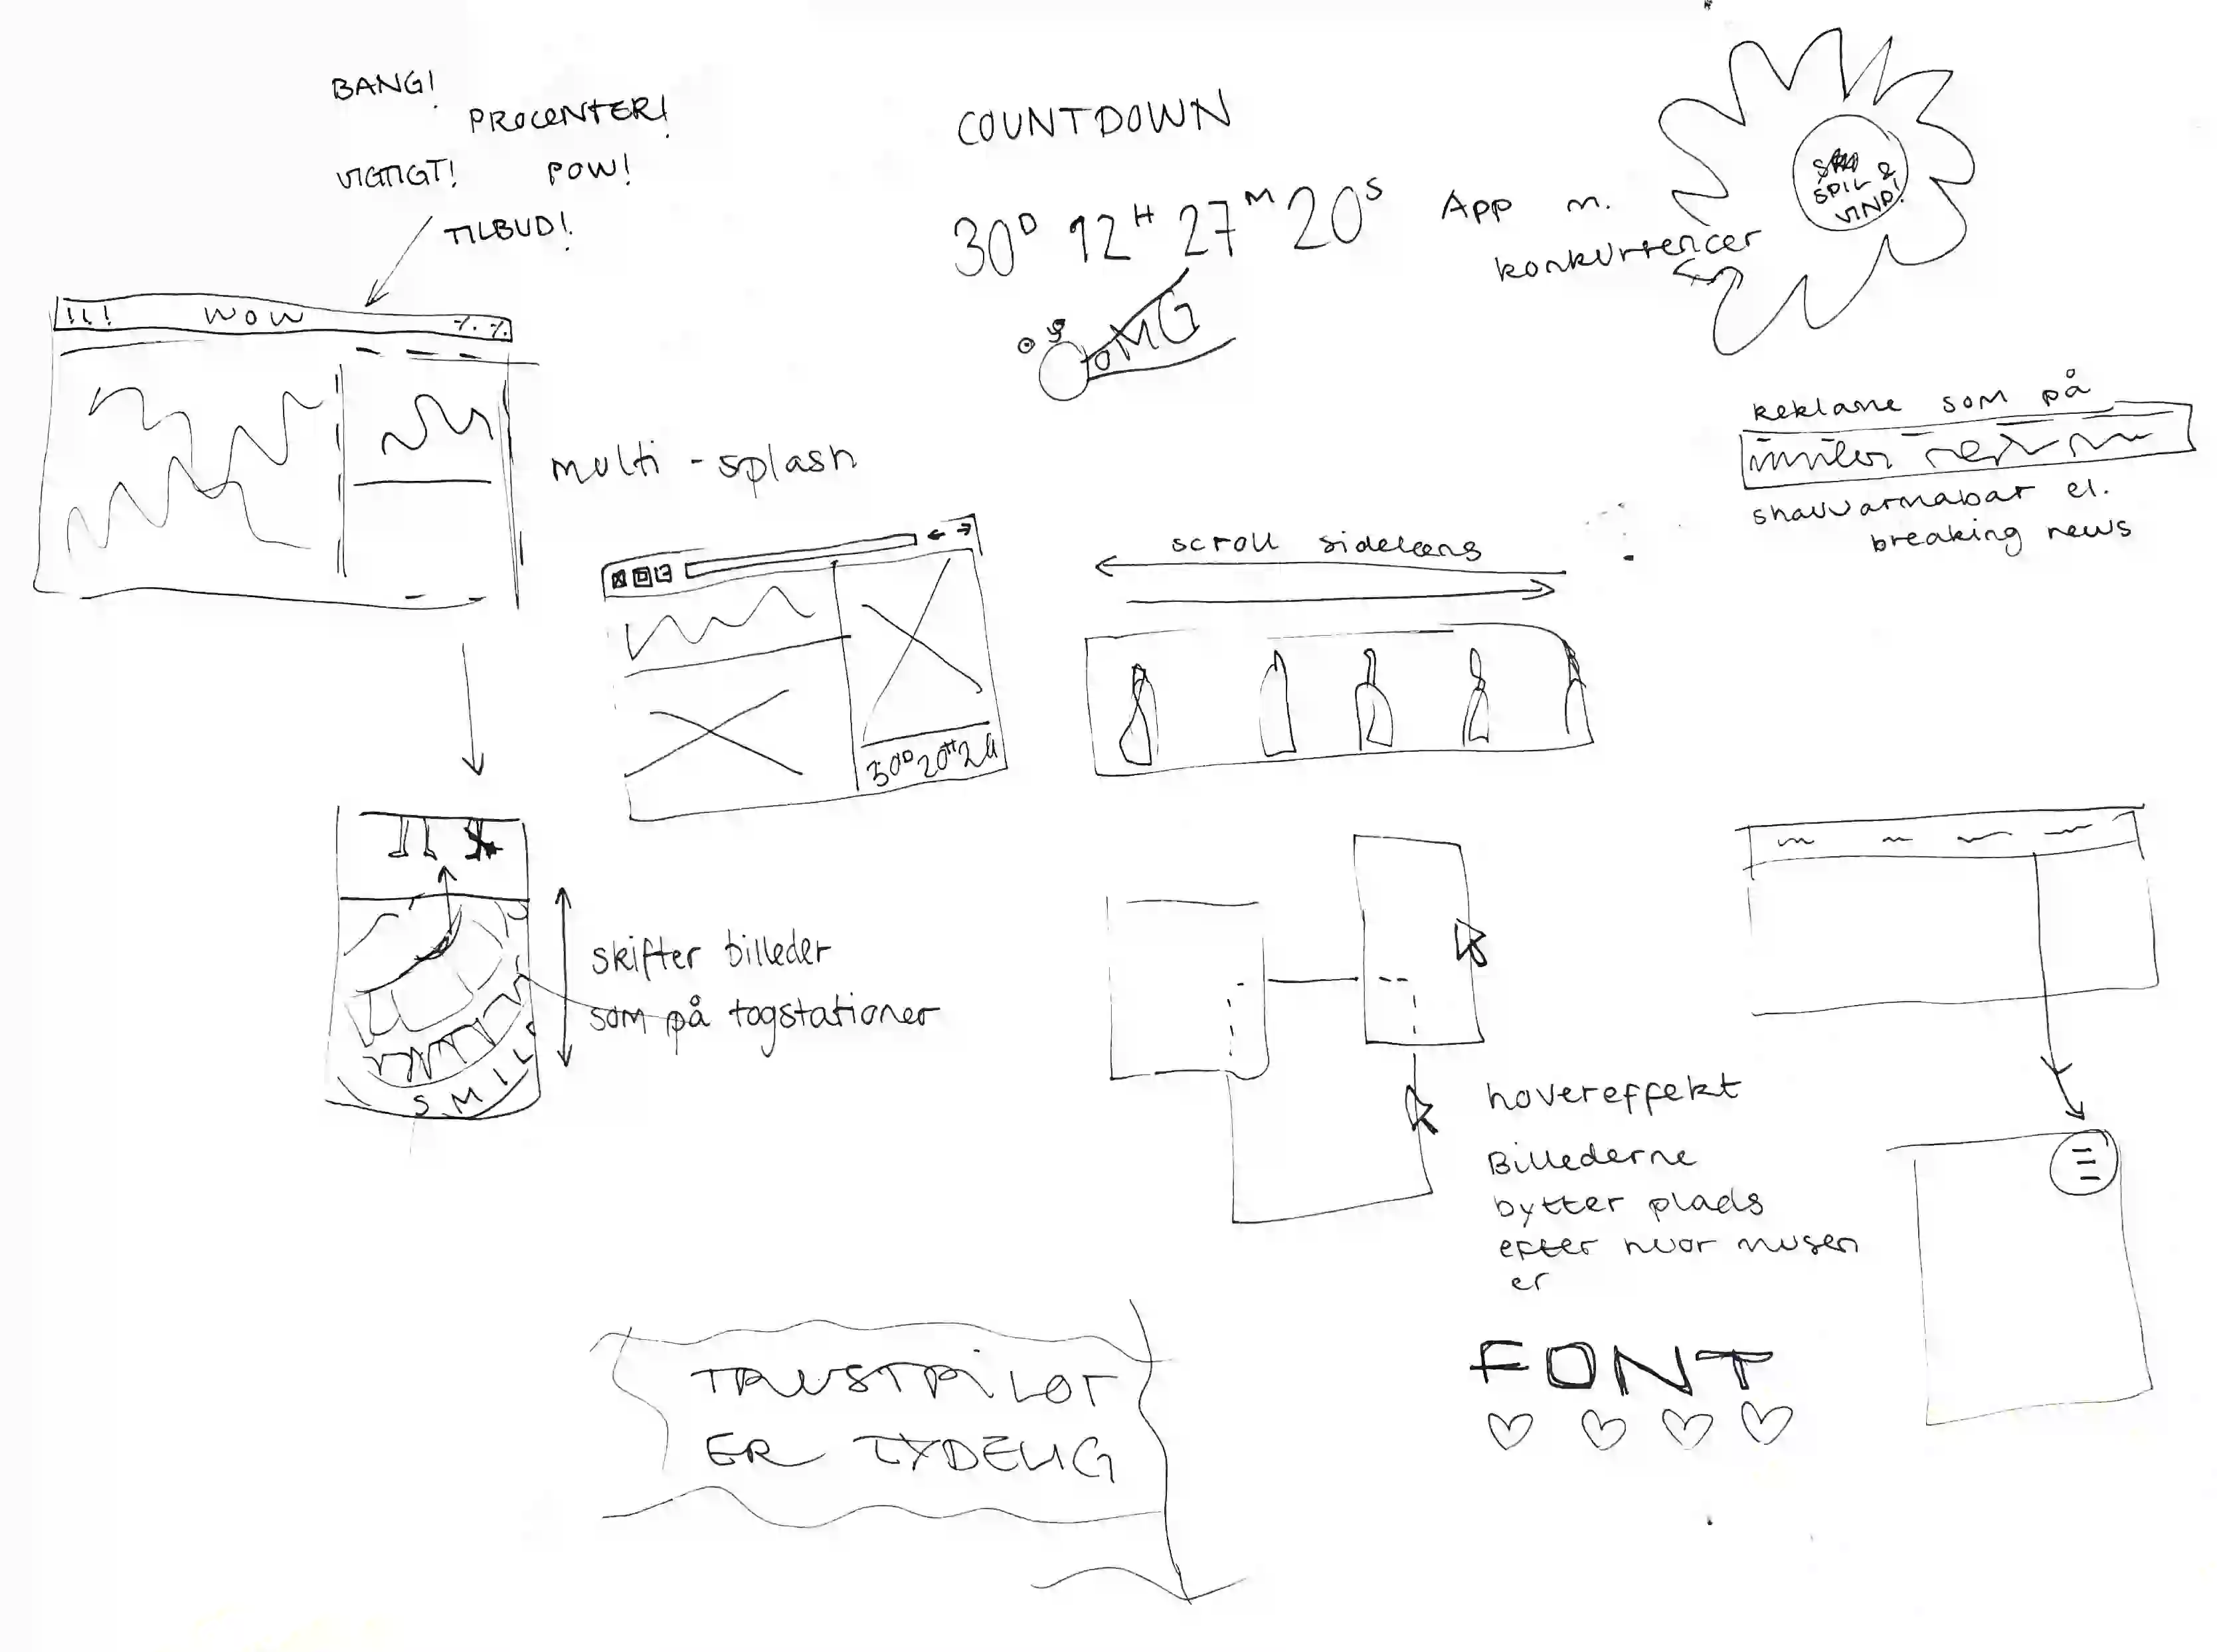 BANG!
PROCENTER!
VIGTIGT!
POW!
TILBUD!
!!! WOW %.%.
multi-splash
COUNTDOWN
30D 12H 27M 20S
OMG
App m.
konkurrencer
SPIL &
VIND!
Reklame som på
shawarmabar el.
breaking news
scroll sidelæns
30D 20H 24
skifter billeder
som på togstationer
SMIL
hovereffekt
Billederne
bytter plads
efter hvor musen
er
TRUSTPILOT
ER TYDELIG
FONT